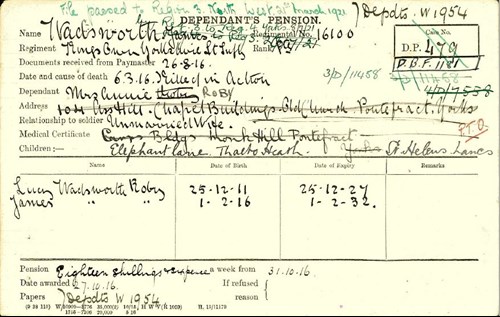 file passed to Region 3. North West. 31st March 1921
DEPENDANT'S PENSION.
Depdts W 1954
Name Wadsworth James Regimental No. 16100
Case No.
D.P. 479
Regiment Kings Own Yorkshire Lt Infty Rank Pte
D.B.F. 1181
Documents received from Paymaster 26-8-16.
Date and cause of death 6.3.16. Killed in Action
3/D/11458
3/D/11458
4/D/7538
Dependant Mrs Annie ROBY
Address Hill. Chapel Buildings. Old Church. Pontefract. Yorks
Relationship to soldier Unmarried Wife.
P.T.O.
Medical Certificate Bldgs Monk Hill Pontefract
Children:— Elephant Lane, Thatto Heath. Yorks St Helens Lancs
Name Date of Birth Date of Expiry Remarks
Lucy Wadsworth Roby 25-12-11 25-12-27
James " " 1-2-16 1-2-32.
Pension Eighteen shillings & sixpence a week from 31.10.16.
Date awarded 27.10.16. If refused
Papers Depdts W 1954 reason